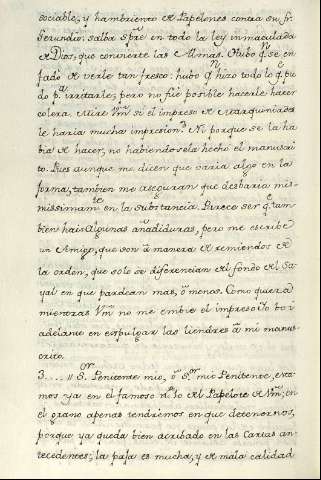 sociable, y hambriento de Papelones contra su Fr.
Gerundio: salva spre en todo la ley inmaculada
de Dios, que convierte las Almas. Hubo qn se en
fadó de verle tan fresco: hubo qn hizo todo lo q pu
do pa irritarle; pero no fue posible hacerle hacer
colera. Mire Vm si el impreso de Marquiniada
le haria mucha impresion? Ni porque se la ha
bia de hacer, no habiendosela hecho el manuscri
to. Pues aunque me dicen que varia algo en la
forma, tambien me aseguran que desbaria mis-
missimamte en la substancia. Parece ser q tam
bien hai algunas añadiduras, pero me escribe
un Amigo, que son à manera de remiendos de
la orden, que solo se diferencian del fondo del Sa
yal en que pardean mas, ò menos. Como quiera
mientras Vm no me embie el impreso, Yo voi
adelante en espulgar las liendres à mi manus
crito.
3.... // Sor Penitente mio, ò Sr mio Penitente, esta
mos ya en el famoso no 10 del Papelote de Vm; en
el grano apenas tendrèmos en que detenernos,
porque ya queda bien acribado en las Cartas an-
tecedentes; la paja es mucha, y de mala calidad